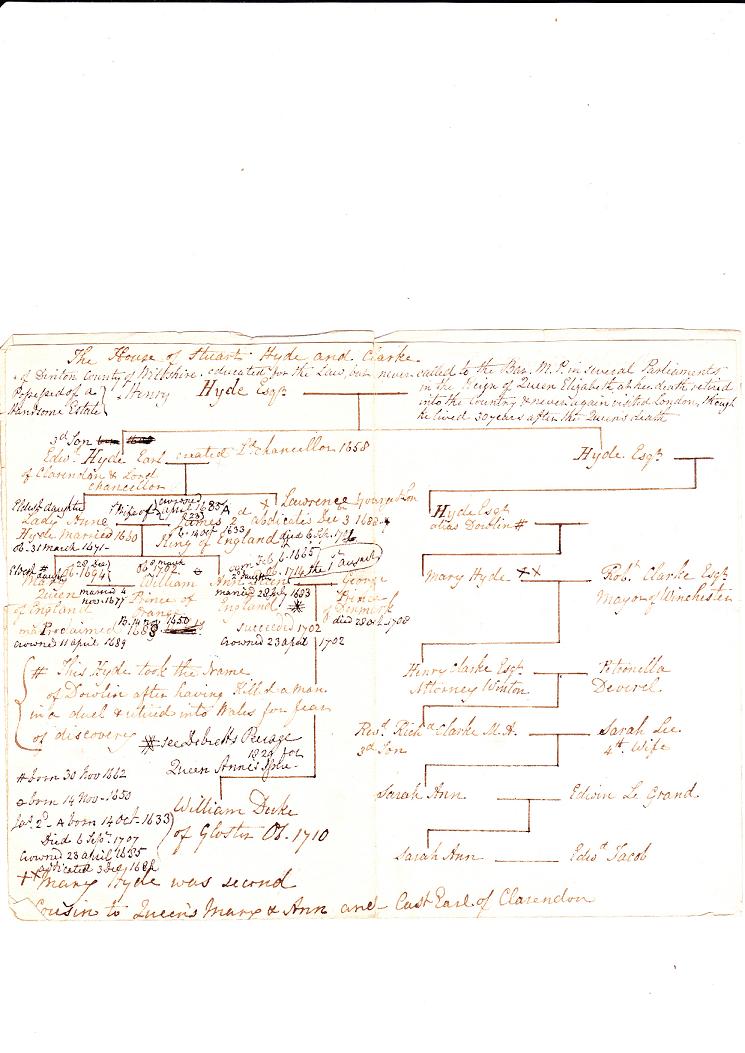 The House of Stuart Hyde and Clarke
of Dinton County of Wiltshire. educated for the Law, but never called to the Bar. M.P. in several Parliaments
Possessed of a
Handsome Estate
Henry Hyde Esqr
in the Reign of Queen Elizabeth at her death retired
into the Country & never again visited London, though
he lived 30 years after the Queen's death
3d Son
Edwd Hyde Earl created Ld chancellor 1658
of Clarendon & Lord
chancellor
Hyde. Esqr
Eldest daughter
Lady Anne
Hyde married 1660
ob. 31 March 1671
Wife of
crowned
april 1685
James 2d abdicated Dec 3 1688
b. 14 Oct 1633
King of England
Lawrence Youngest Son
died 6 Sep.
Hyde Esqr
alias Dowlin #
Eldest
daughter
ob. 1694
Queen
of England
married 4
Nov. 1677
Proclaimed
crowned 11 april 1689
William
Prince of
Orange
B. 14 Nov 1650
born Feb 6. 1665
2d daughter
ob. 1714 the 1st August
Ann Queen
married 28 July 1683
England
succeeded 1702
crowned 23 april 1702
George
Prince
of Denmark
died 28 Oct. 1708
Mary Hyde ××
Robt. Clarke Esqr
Mayor of Winchester
# This Hyde took the Name
of Dowlin after having Killed a Man
in a duel & retired into Wales for fear
of discovery
Henry Clarke Esqr
Attorney Winton
Petronella
Deveril.
# see Debretts Peerage
1820 for
Queen Anne's Issue
Revd. Richd Clarke M.A.
3d Son
Sarah Lee
4th Wife
# born 30 Nov 1662
born 14 Nov. 1650
Jas 2d - A born 14 Oct. 1633
Died 6 Sepr. 1707
Crowned 23 april 1685
abdicated 3 Dec 1688
William Duke
of Gloster Ob. 1710
Sarah Ann
Edwin Le Grand.
Sarah Ann
Edwd Jacob
×× Mary Hyde was second
Cousin to Queen's Mary & Ann and Last Earl of Clarendon